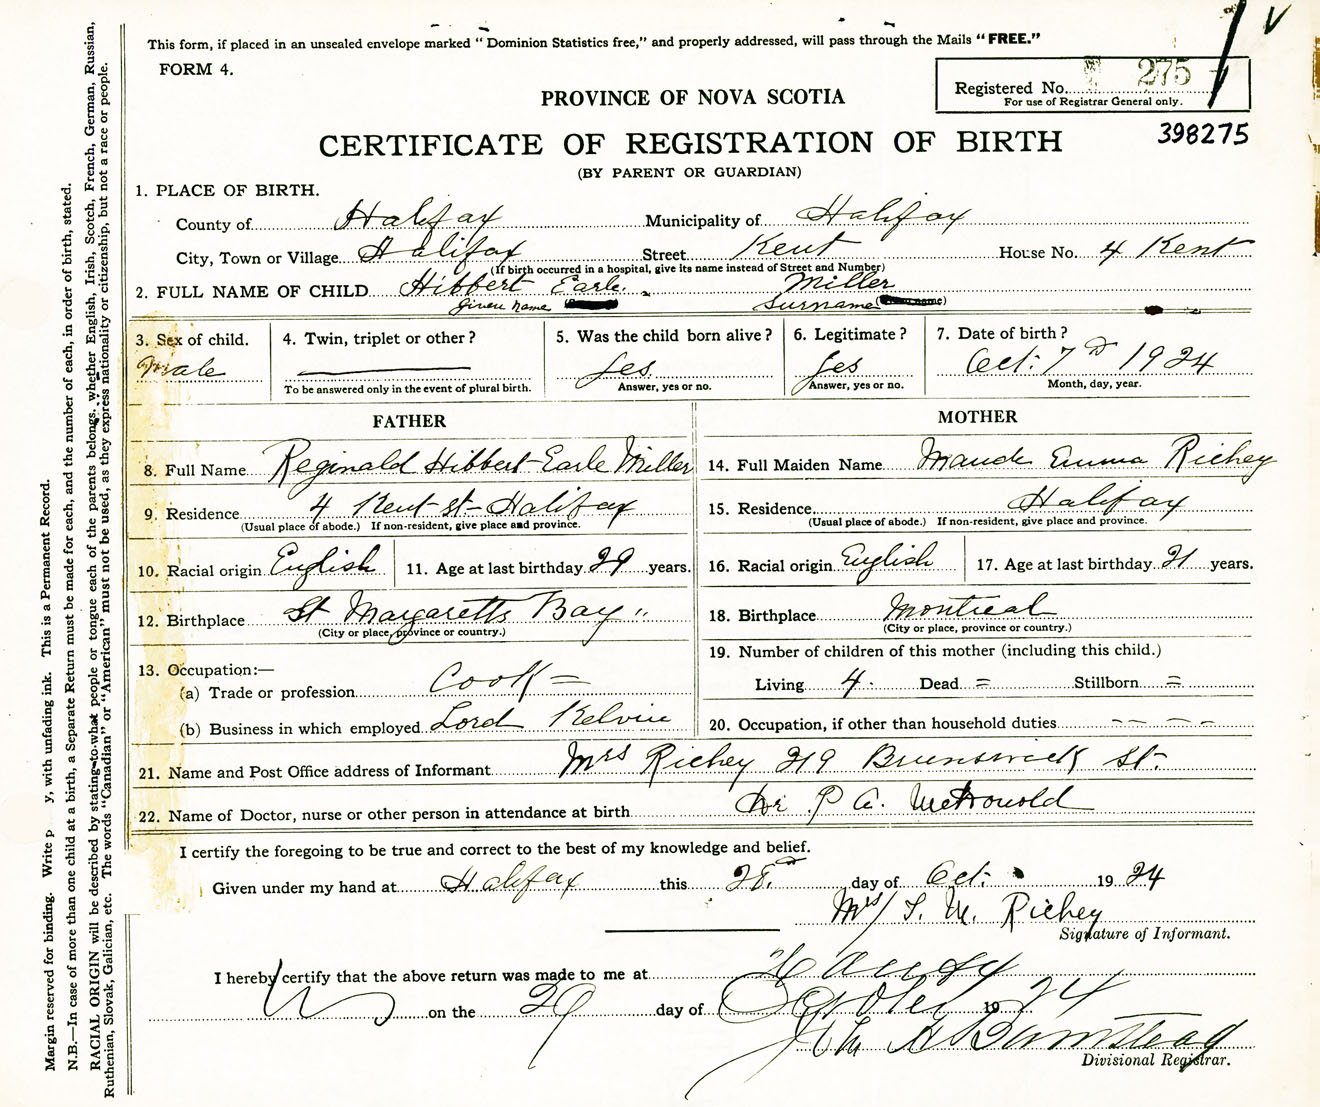 This form, if placed in an unsealed envelope marked "Dominion Statistics free," and properly addressed, will pass through the Mails "FREE."
FORM 4.
Registered No. 275
For use of Registrar General only.
PROVINCE OF NOVA SCOTIA
398275
CERTIFICATE OF REGISTRATION OF BIRTH
(BY PARENT OR GUARDIAN)
1. PLACE OF BIRTH.
County of Halifax Municipality of Halifax
City, Town or Village Halifax Street Kent House No. 4 Kent
(If birth occurred in a hospital, give its name instead of Street and Number)
2. FULL NAME OF CHILD Hibbert Earle Miller
Given name Surname
3. Sex of child. 4. Twin, triplet or other? 5. Was the child born alive? 6. Legitimate? 7. Date of birth?
Male Yes Yes Oct: 7th 1924
To be answered only in the event of plural birth. Answer, yes or no. Answer, yes or no. Month, day, year.
FATHER MOTHER
8. Full Name Reginald Hibbert Earle Miller 14. Full Maiden Name Maude Emma Richey
9. Residence 4 Kent st - Halifax 15. Residence Halifax
(Usual place of abode.) If non-resident, give place and province. (Usual place of abode.) If non-resident, give place and province.
10. Racial origin English 11. Age at last birthday 29 years. 16. Racial origin English 17. Age at last birthday 21 years.
12. Birthplace St Margaretts Bay " 18. Birthplace Montreal
(City or place, province or country.) (City or place, province or country.)
13. Occupation:— 19. Number of children of this mother (including this child.)
(a) Trade or profession Cook = Living 4 . Dead = Stillborn =
(b) Business in which employed Lord Kelvin 20. Occupation, if other than household duties -- - -
21. Name and Post Office address of Informant Mrs Richey 219 Brunswick St.
22. Name of Doctor, nurse or other person in attendance at birth Dr P A. McDonold
I certify the foregoing to be true and correct to the best of my knowledge and belief.
Given under my hand at Halifax this 28th day of Oct: 1924
Mrs J. M. Richey
Signature of Informant.
I hereby certify that the above return was made to me at
on the 29 day of October 1924
Divisional Registrar.
Margin reserved for binding. Write p y, with unfading ink. This is a Permanent Record.
N.B.—In case of more than one child at a birth, a Separate Return must be made for each, and the number of each, in order of birth, stated.
RACIAL ORIGIN will be described by stating to what people or tongue each of the parents belongs, whether English, Irish, Scotch, French, German, Russian,
Ruthenian, Slovak, Galician, etc. The words "Canadian" or "American" must not be used, as they express nationality or citizenship, but not a race or people.